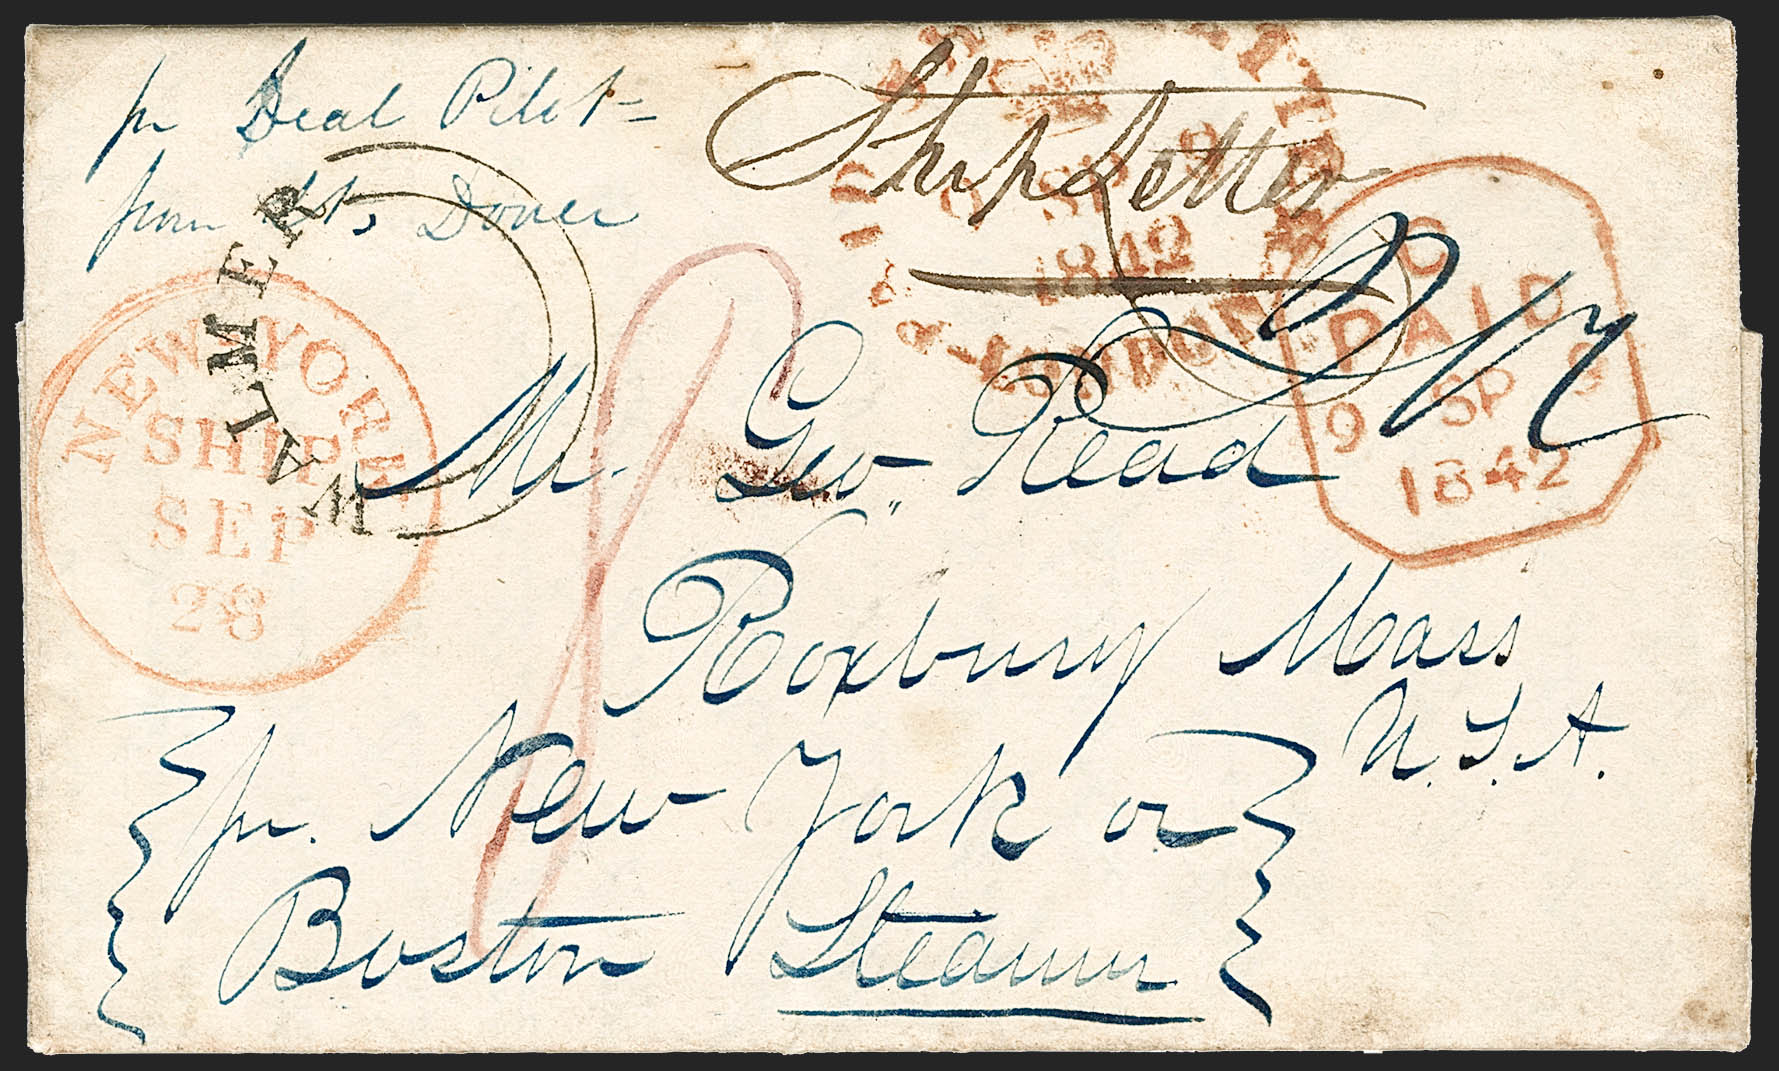 pr Deal Pilot
from St, Dover
Ship Letter
WALMER
NEW-YORK
SHIP
SEP
28
1842
LONDON
C
PAID
9 SP 9
1842
Mr. Geo. Read
Roxbury Mass
U.S.A.
pr. New York or
Boston Steamer